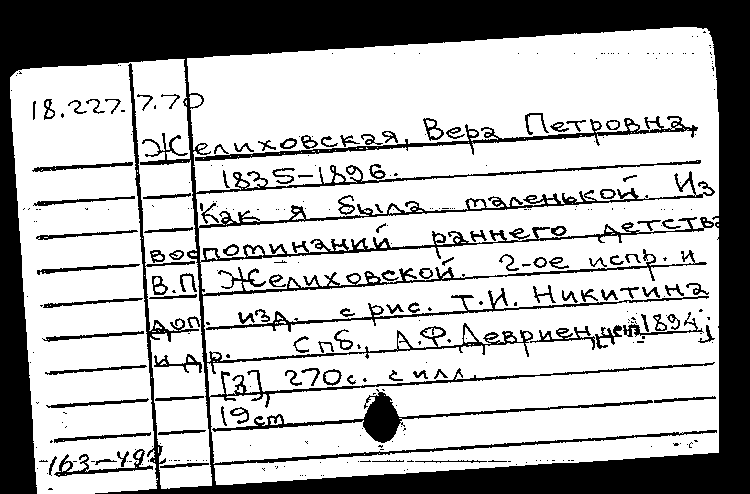 18.227.7.70
Желиховская, Вера Петровна,
1835-1896.
Как я была маленькой. Из
воспоминаний раннего детства
В.П. Желиховской. 2-ое испр. и
доп. изд. с рис. Т.И. Никитина
и др. Спб., А.Ф. Девриен, ценз. 1894;
[3], 270с. с илл.
19cm
163-492